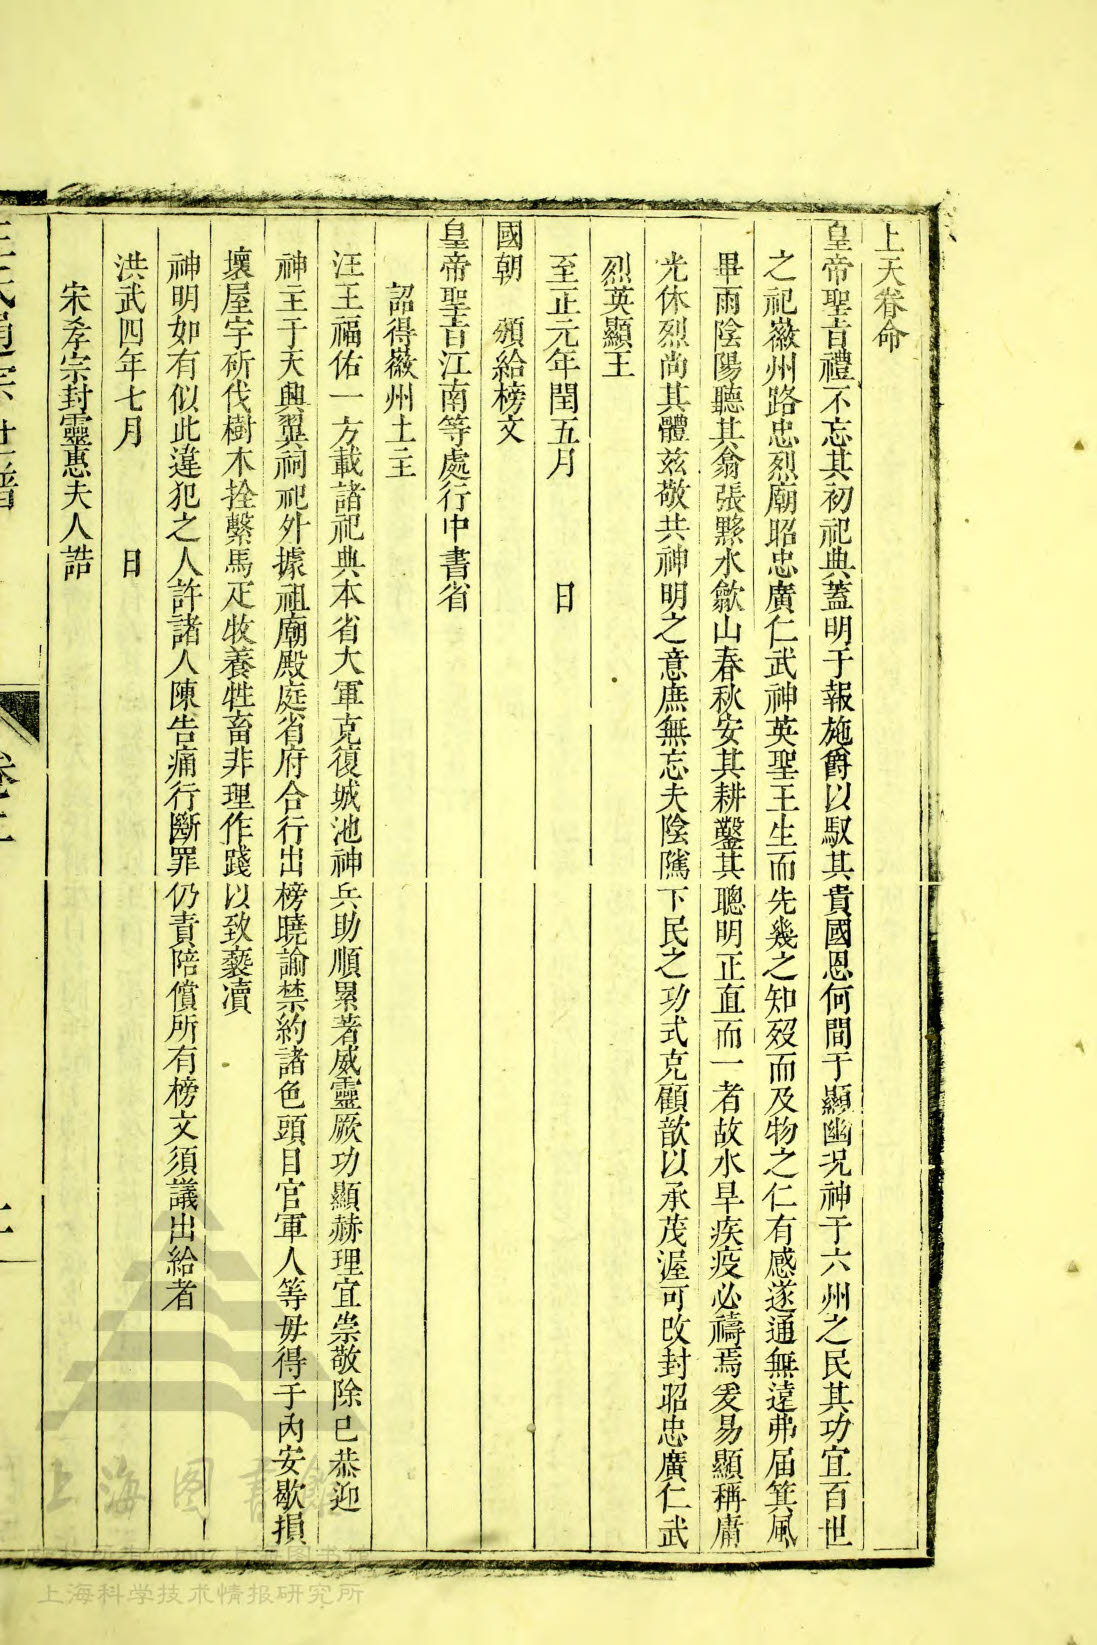 上天眷命
皇帝聖旨禮不忘其初祀典蓋明于報施爵以馭其貴國恩何間于顯幽况神于六州之民其功宜百世
之祀徽州路忠烈廟昭忠廣仁武神英聖王生而先幾之知歿而及物之仁有感遂通無遠弗届箕風
畢雨陰陽聽其翕張黟水歙山春秋安其耕鑿其聰明正直而一者故水旱疾疫必禱焉爰易顯稱庸
光休烈尚其體兹敬共神明之意庶無忘夫陰隲下民之功式克顧歆以承茂渥可改封昭忠廣仁武
烈英顯王
至正元年閏五月 日
國朝 頒給榜文
皇帝聖旨江南等處行中書省
詔得徽州土主
汪王福佑一方載諸祀典本省大軍克復城池神兵助順累著威靈厥功顯赫理宜崇敬除已恭迎
神主于天興翼祠祀外據祖廟殿庭省府合行出榜曉諭禁約諸色頭目官軍人等毋得于內安歇損
壞屋宇斫伐樹木拴繫馬疋牧養牲畜非理作踐以致褻凟
神明如有似此違犯之人許諸人陳告痛行斷罪仍責陪償所有榜文須議出給者
洪武四年七月 日
宋孝宗封靈惠夫人誥
汪氏通宗世譜
卷二
上海图書館
上海科学技术情报研究所